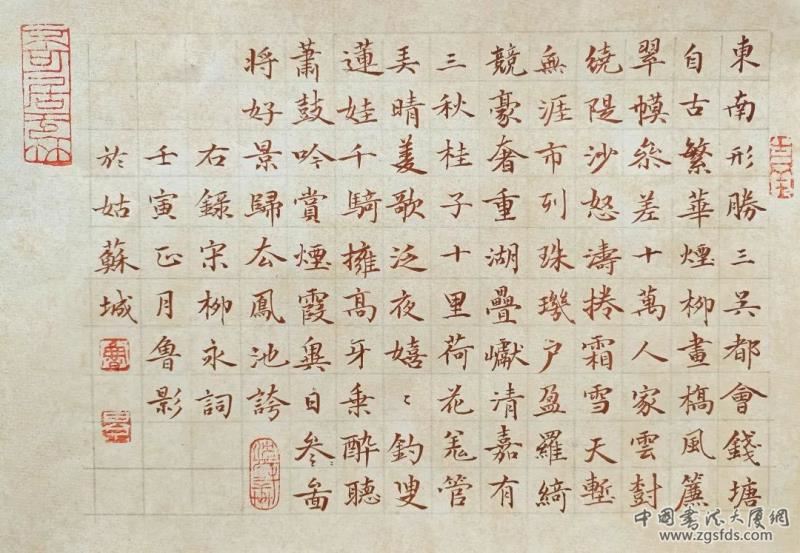 東南形勝三吴都會錢塘
自古繁華煙柳畫橋風簾
翠幙叅差十萬人家雲樹
繞隄沙怒濤捲霜雪天塹
無涯市列珠璣户盈羅綺
競豪奢重湖疊巘清嘉有
三秋桂子十里荷花羌管
弄晴菱歌泛夜嬉〻釣叟
蓮娃千騎擁高牙乘醉聽
蕭鼓吟賞煙霞異日叅啚
將好景歸去鳳池誇
右錄宋柳永詞
壬寅正月魯影
於姑蘇城
中國書法大厦網
www.zgsfds.com